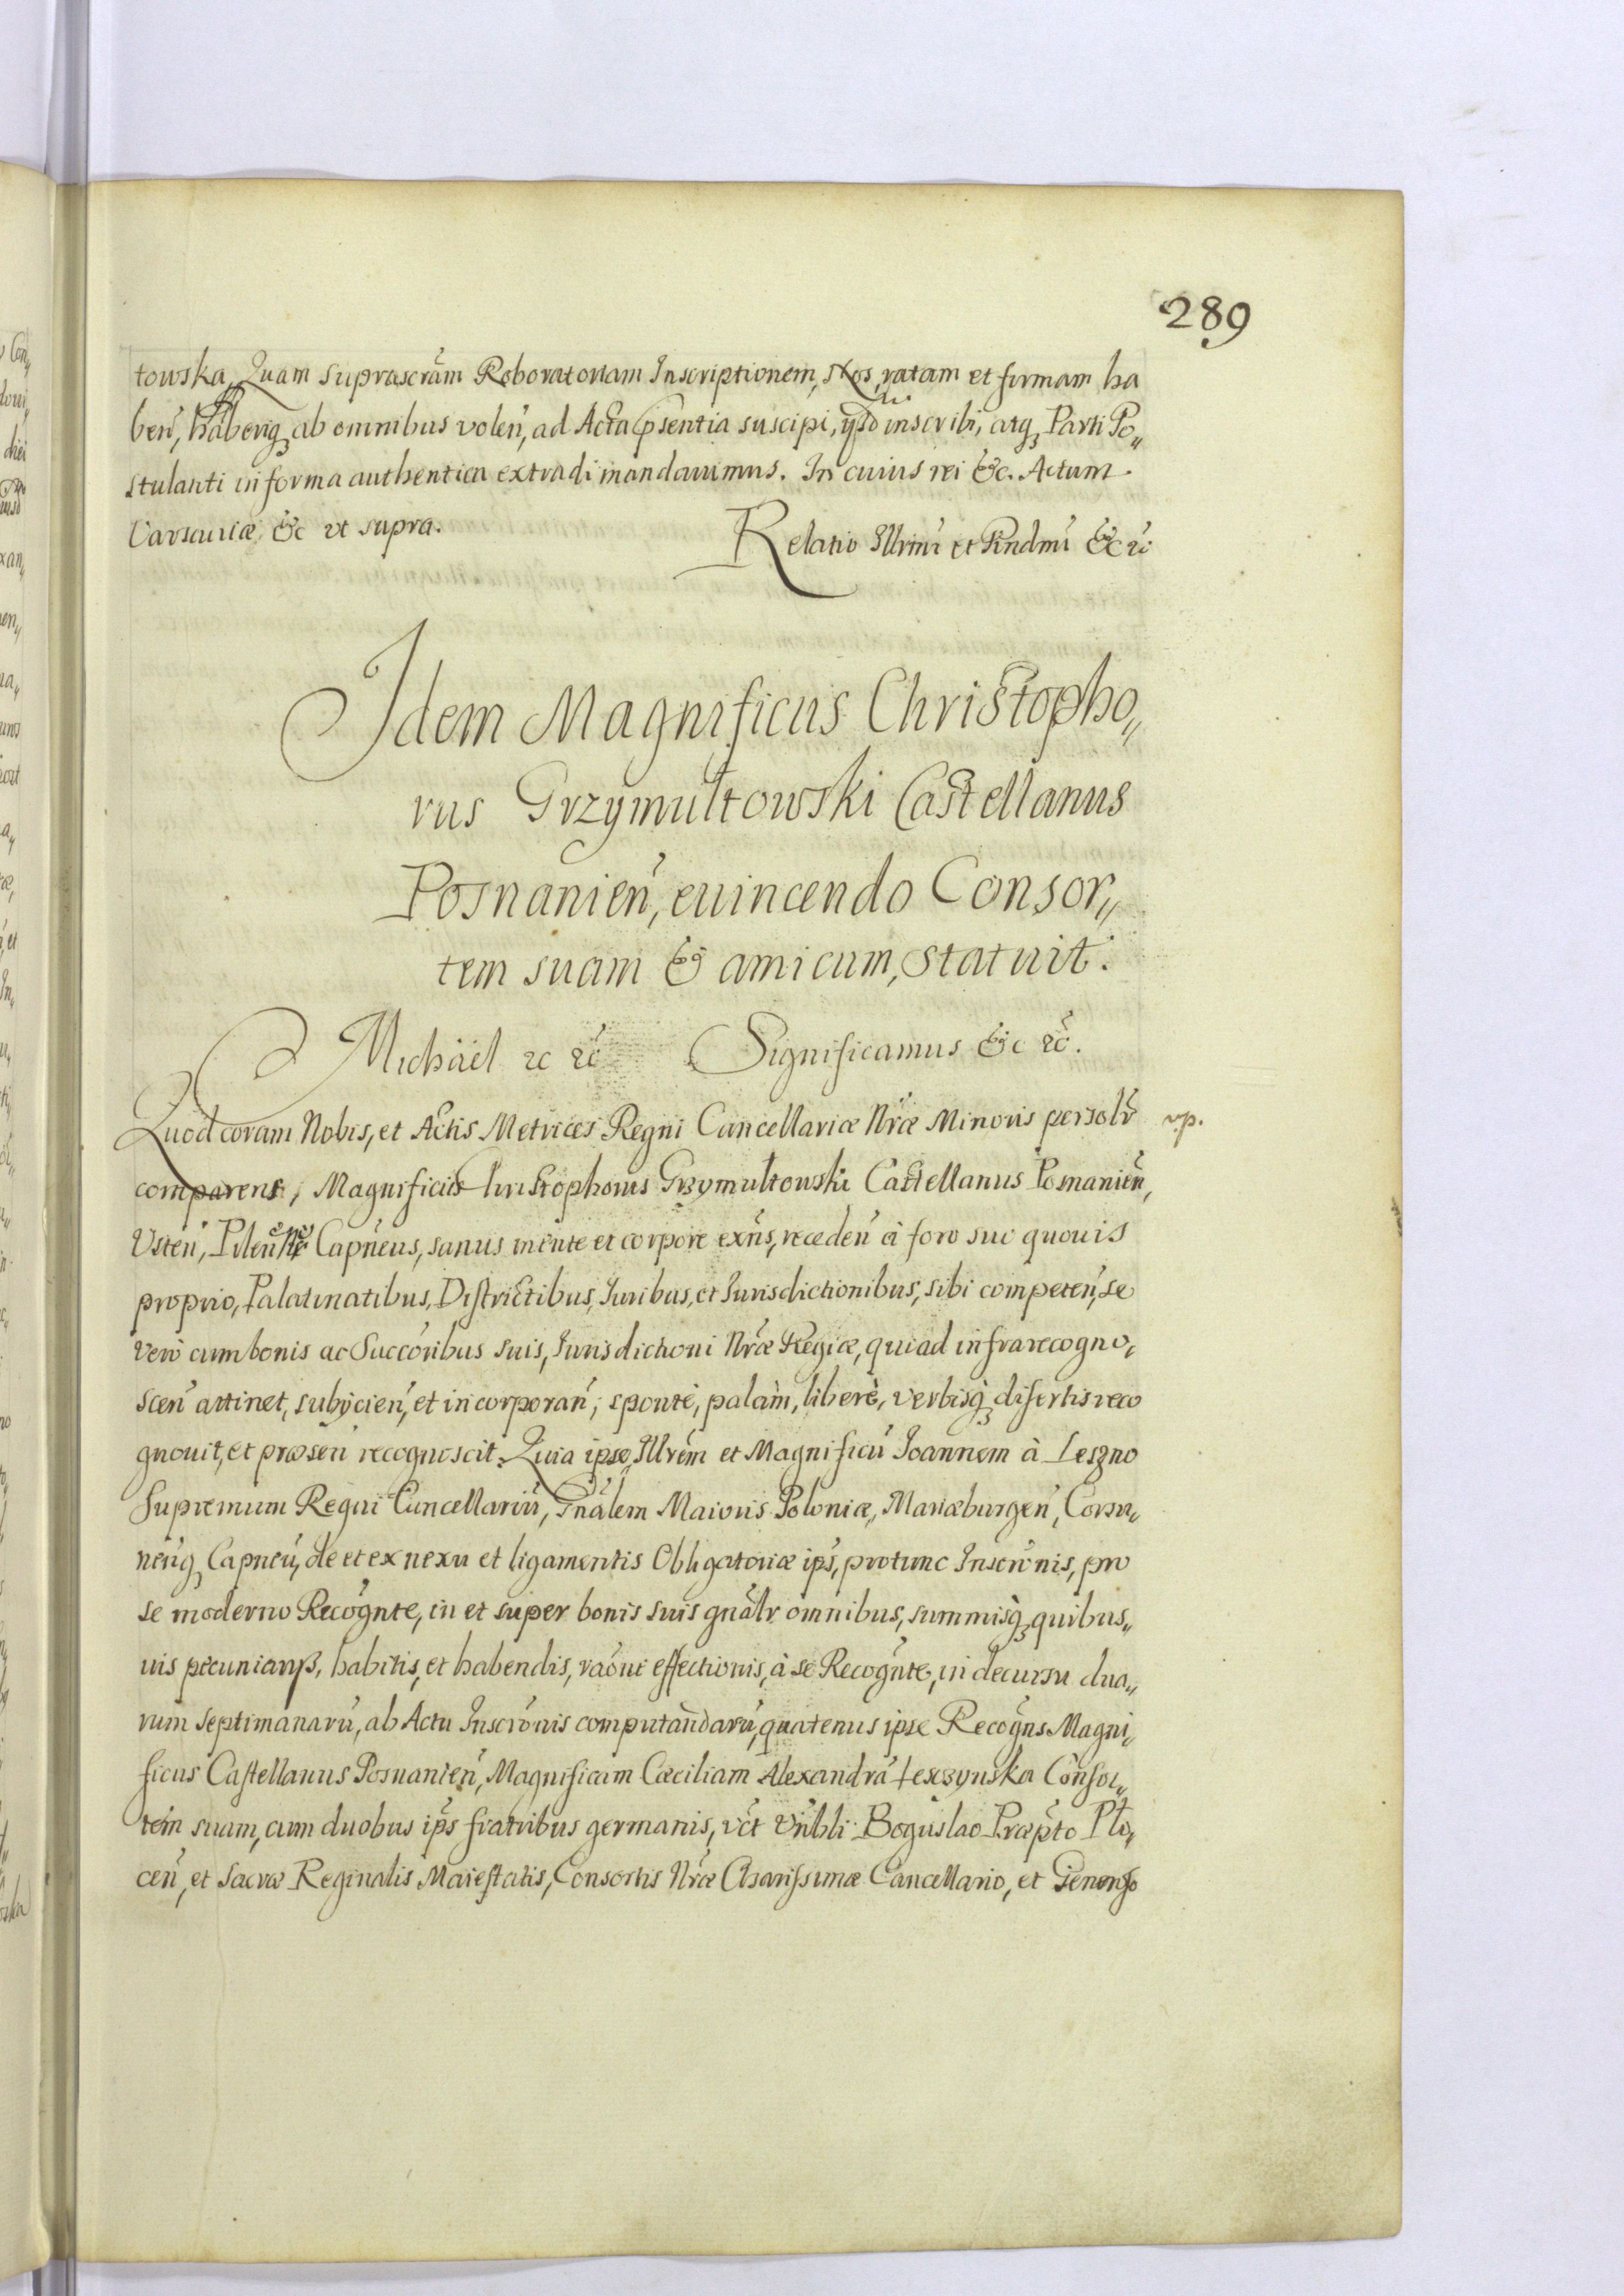 289
towska, Quam suprascrām Roboratoriam Inscriptionem, Nos, ratam et firmam ha
beń, haberiq; ab omnibus voleń, ad Acta pśentia suscipi, ijsd inscribi, atq; Parti Po„
stulanti in forma authentica extradi mandavimus. In cuius rei &c. Actum
Varsauiæ &c vt supra.
Relatio Illrmi et Rndmi &c ꝛc
Idem Magnificus Christopho„
rus Grzymultowski Castellanus
Posnanień, euincendo Consor„
tem suam & amicum, statuit.
Michäel ꝛc ꝛc Significamus &c ꝛc.
Quod coram Nobis, et Actis Metrices Regni Cancellariæ Nræ Minoris personlr
vp.
comparens, Magnificus Christophorus Grzymultowski Castellanus Posnanień,
Vsteń, Pileń Capneus, sanus mente et corpore exns, recedeń à foro suo quouis
proprio, Palatinatibus, Districtibus, Juribus, et Jurisdictionibus, sibi competeń, se
vero cum bonis ac Succoribus suis, Jurisdictioni Nræ Regiæ, qui ad infra recogno„
sceń attinet, subijcień, et incorporań, sponte, palàm, liberè, verbisq; disertis reco
gnouit, et præseń recognoscit. Quia ipse, Illrem et Magnificū Joannem à Leszno
Supremum Regni Cancellariū, Gnalem Maioris Poloniæ, Mariæburgeń, Corsu„
neńq; Capneū, de et ex nexu et ligamentis Obligatoriæ ips, pro tunc Inscronis, pro
se moderno Recognte, in et super bonis suis gnalr omnibus, summisq; quibus„
uis pecuniarys, habitis, et habendis, raone effectionis, à se Recognte, in decursu dua„
rum septimanarū, ab Actu Inscronis computandarū, quatenus ipse Recogns Magni„
ficus Castellanus Posnanień, Magnificam Cæciliam Alexandrā Leszczynska Consor„
tem suam, cum duobus ips fratribus germanis, vct Vnbli Boguslao Præpto Plo„
ceń, et Sacræ Reginalis Maiestatis, Consortis Nræ Charissimæ Cancellario, et Generoso